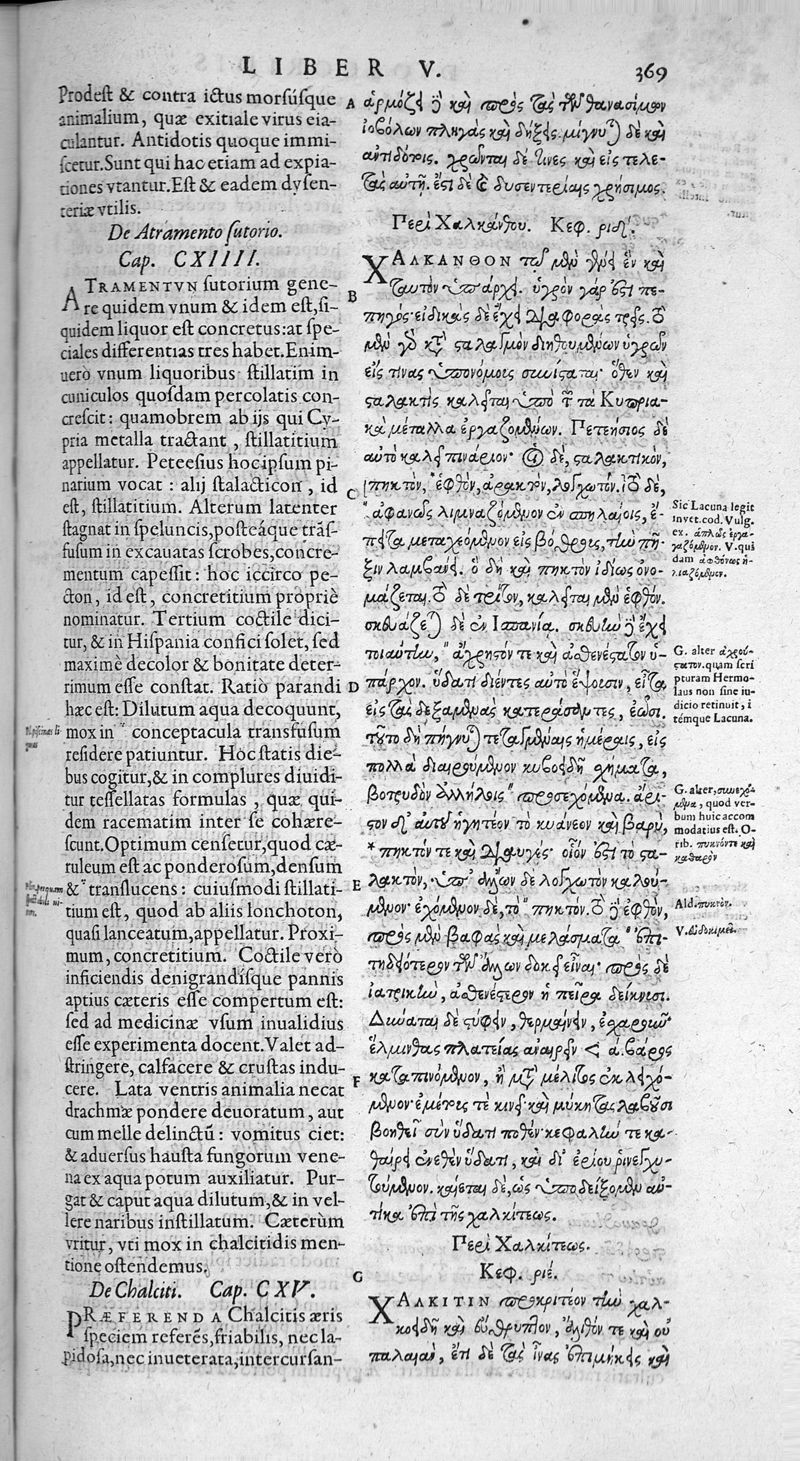 LIBER V.
369
Prodest & contra ictus morsúsque
animalium, quæ exitiale virus eia-
culantur. Antidotis quoque immi-
scetur. Sunt qui hac etiam ad expia-
tiones vtantur. Est & eadem dysen-
teriæ vtilis.
De Atramento sutorio.
Cap. CXIIII.
ATRAMENTVN sutorium gene-
re quidem vnum & idem est, si-
quidem liquor est concretus: at spe-
ciales differentias tres habet. Enim-
uero vnum liquoribus stillatim in
cuniculos quosdam percolatis con-
crescit: quamobrem ab ijs qui Cy-
pria metalla tractant, stillatitium
appellatur. Peteesius hoc ipsum pi-
narium vocat: alij stalacticon, id
est, stillatitium. Alterum latenter
stagnat in speluncis, posteáque trãs-
fusum in excauatas scrobes, concre-
mentum capessit: hoc iccirco pe-
cton, id est, concretitium propriè
nominatur. Tertium coctile dici-
tur, & in Hispania confici solet, sed
maximè decolor & bonitate deter-
rimum esse constat. Ratio parandi
hæc est: Dilutum aqua decoquunt,
mox in " conceptacula transfusum
residere patiuntur. Hoc statis die-
bus cogitur, & in complures diuidi-
tur tessellatas formulas, quæ qui-
dem racematim inter se cohære-
scunt. Optimum censetur, quod cæ-
ruleum est ac ponderosum, densum
& " translucens: cuiusmodi stillati-
tium est, quod ab aliis lonchoton,
quasi lanceatum, appellatur. Proxi-
mum, concretitium. Coctile verò
inficiendis denigrandísque pannis
aptius cæteris esse compertum est:
sed ad medicinæ vsum inualidius
esse experimenta docent. Valet ad-
stringere, calfacere & crustas indu-
cere. Lata ventris animalia necat
drachmæ pondere deuoratum, aut
cum melle delinctũ: vomitus ciet:
& aduersus hausta fungorum vene-
na ex aqua potum auxiliatur. Pur-
gat & caput aqua dilutum, & in vel-
lere naribus instillatum. Cæterùm
vritur, vti mox in chalcitidis men-
tione ostendemus.
De Chalciti. Cap. CXV.
PRÆFERENDA Chalcitis æris
speciem referẽs, friabilis, nec la-
pidosa, nec inueterata, intercursan-
A
B
C
D
E
F
G
ἁρμόζει ἢ καὶ πρὸς τὰς τῶν θανασίμων
ἰοβόλων πληγὰς καὶ δήξεις. μίγνυται δὲ καὶ
ἀντιδότοις. χρῶνται δέ τινες καὶ εἰς τελε-
τὰς αὐτῇ. ἔστι δὲ καὶ δυσεντερίαις χρήσιμος.
Περὶ Χαλκάνθου. Κεφ. ριδ'.
ΧΑΛΚΑΝΘΟΝ τῷ μὲν γένει ἓν καὶ
ταυτὸν ὑπάρχει. ὑγρὸν γάρ ἐστι πε-
πηγός· εἰδικὰς δὲ ἔχει διαφορὰς τρεῖς. τὸ
μὲν γὰρ κατὰ σταλαγμὸν διηθουμένων ὑγρῶν
εἴς τινας ὑπονόμους συνίσταται· ὅθεν καὶ
σταλακτὶς καλεῖται ὑπὸ τῶν τὰ Κυπρια-
κὰ μέταλλα ἐργαζομένων. Πετεήσιος δὲ
αὐτὸ καλεῖ πινάριον· οἱ δὲ, σταλακτικὸν,
μαζεται. τὸ δὲ τρίτον, καλεῖται μὲν ἑφθόν.
σκευάζεται δὲ ἐν Ἱσπανίᾳ. σκευὴν ἢ ἔχει
τοιαύτην, " ἄχρηστόν τε καὶ ἀσθενέστατον ὑ-
πάρχον. ὕδατι διέντες αὐτὸ ἕψουσιν, εἶτα
εἰς τὰς δεξαμενὰς κατεράσαντες, ἐῶσι.
τοῦτο δὴ πήγνυται τεταγμέναις ἡμέραις, εἰς
πολλὰ διαιρούμενον κυβοειδῆ σχήματα,
βοτρυδὸν ἀλλήλοις " προσεχόμενα. ἄρι-
στον δ' αὐτοῦ ἡγητέον τὸ κυάνεον καὶ βαρὺ,
* πηκτόν τε καὶ διαυγές· οἷόν ἐστι τὸ στα-
λακτὸν, ὑπ' ἄλλων δὲ λογχωτὸν καλού-
μενον· ἐχόμενον δὲ, τὸ " πηκτόν. τὸ ἢ ἑφθὸν,
πρὸς μὲν βαφὰς καὶ μελάσματα " ἐπι-
τηδειότερον τῶν ἄλλων δοκεῖ εἶναι· πρὸς δὲ
ἰατρικὴν, ἀσθενέστερον ἡ πεῖρα δείκνυσι.
Δύναται δὲ στύφειν, θερμαίνειν, ἐσχαροῦν.
ἕλμινθας πλατείας ἀναιρεῖν < ἁ βάρος
καταπινόμενον, ἢ μετὰ μέλιτος ἐκλειχό-
μενον· ἐμέτοις τε κινεῖ καὶ μύκητας λαβοῦσι
βοηθεῖ σὺν ὕδατι ποθέν· κεφαλήν τε κα-
θαίρει ἀνεθὲν ὕδατι, καὶ δι' ἐρίου ῥινεγχυ-
τούμενον. καίεται δὲ, ὡς ὑποδείξομεν αὐ-
τίκα ἐπὶ τῆς χαλκίτεως.
Περὶ Χαλκίτεως.
Κεφ. ριε'.
ΧΑΛΚΙΤΙΝ προκριτέον τὴν χαλ-
κοειδῆ καὶ εὔθρυπτον, ἄλιθόν τε καὶ οὐ
παλαιὰν, ἔτι δὲ τὰς ἶνας ἐπιμήκεις καὶ
Sic Lacuna legit
G. alter
quam scri
pturam Hermo-
laus non sine iu-
dicio retinuit, i
témque Lacuna.
G. alter,
quod ver-
bum huic accom
modatius est. O-
rib. πυκνόν τε καὶ
καθαρὸν
Ald. πυκνόν.